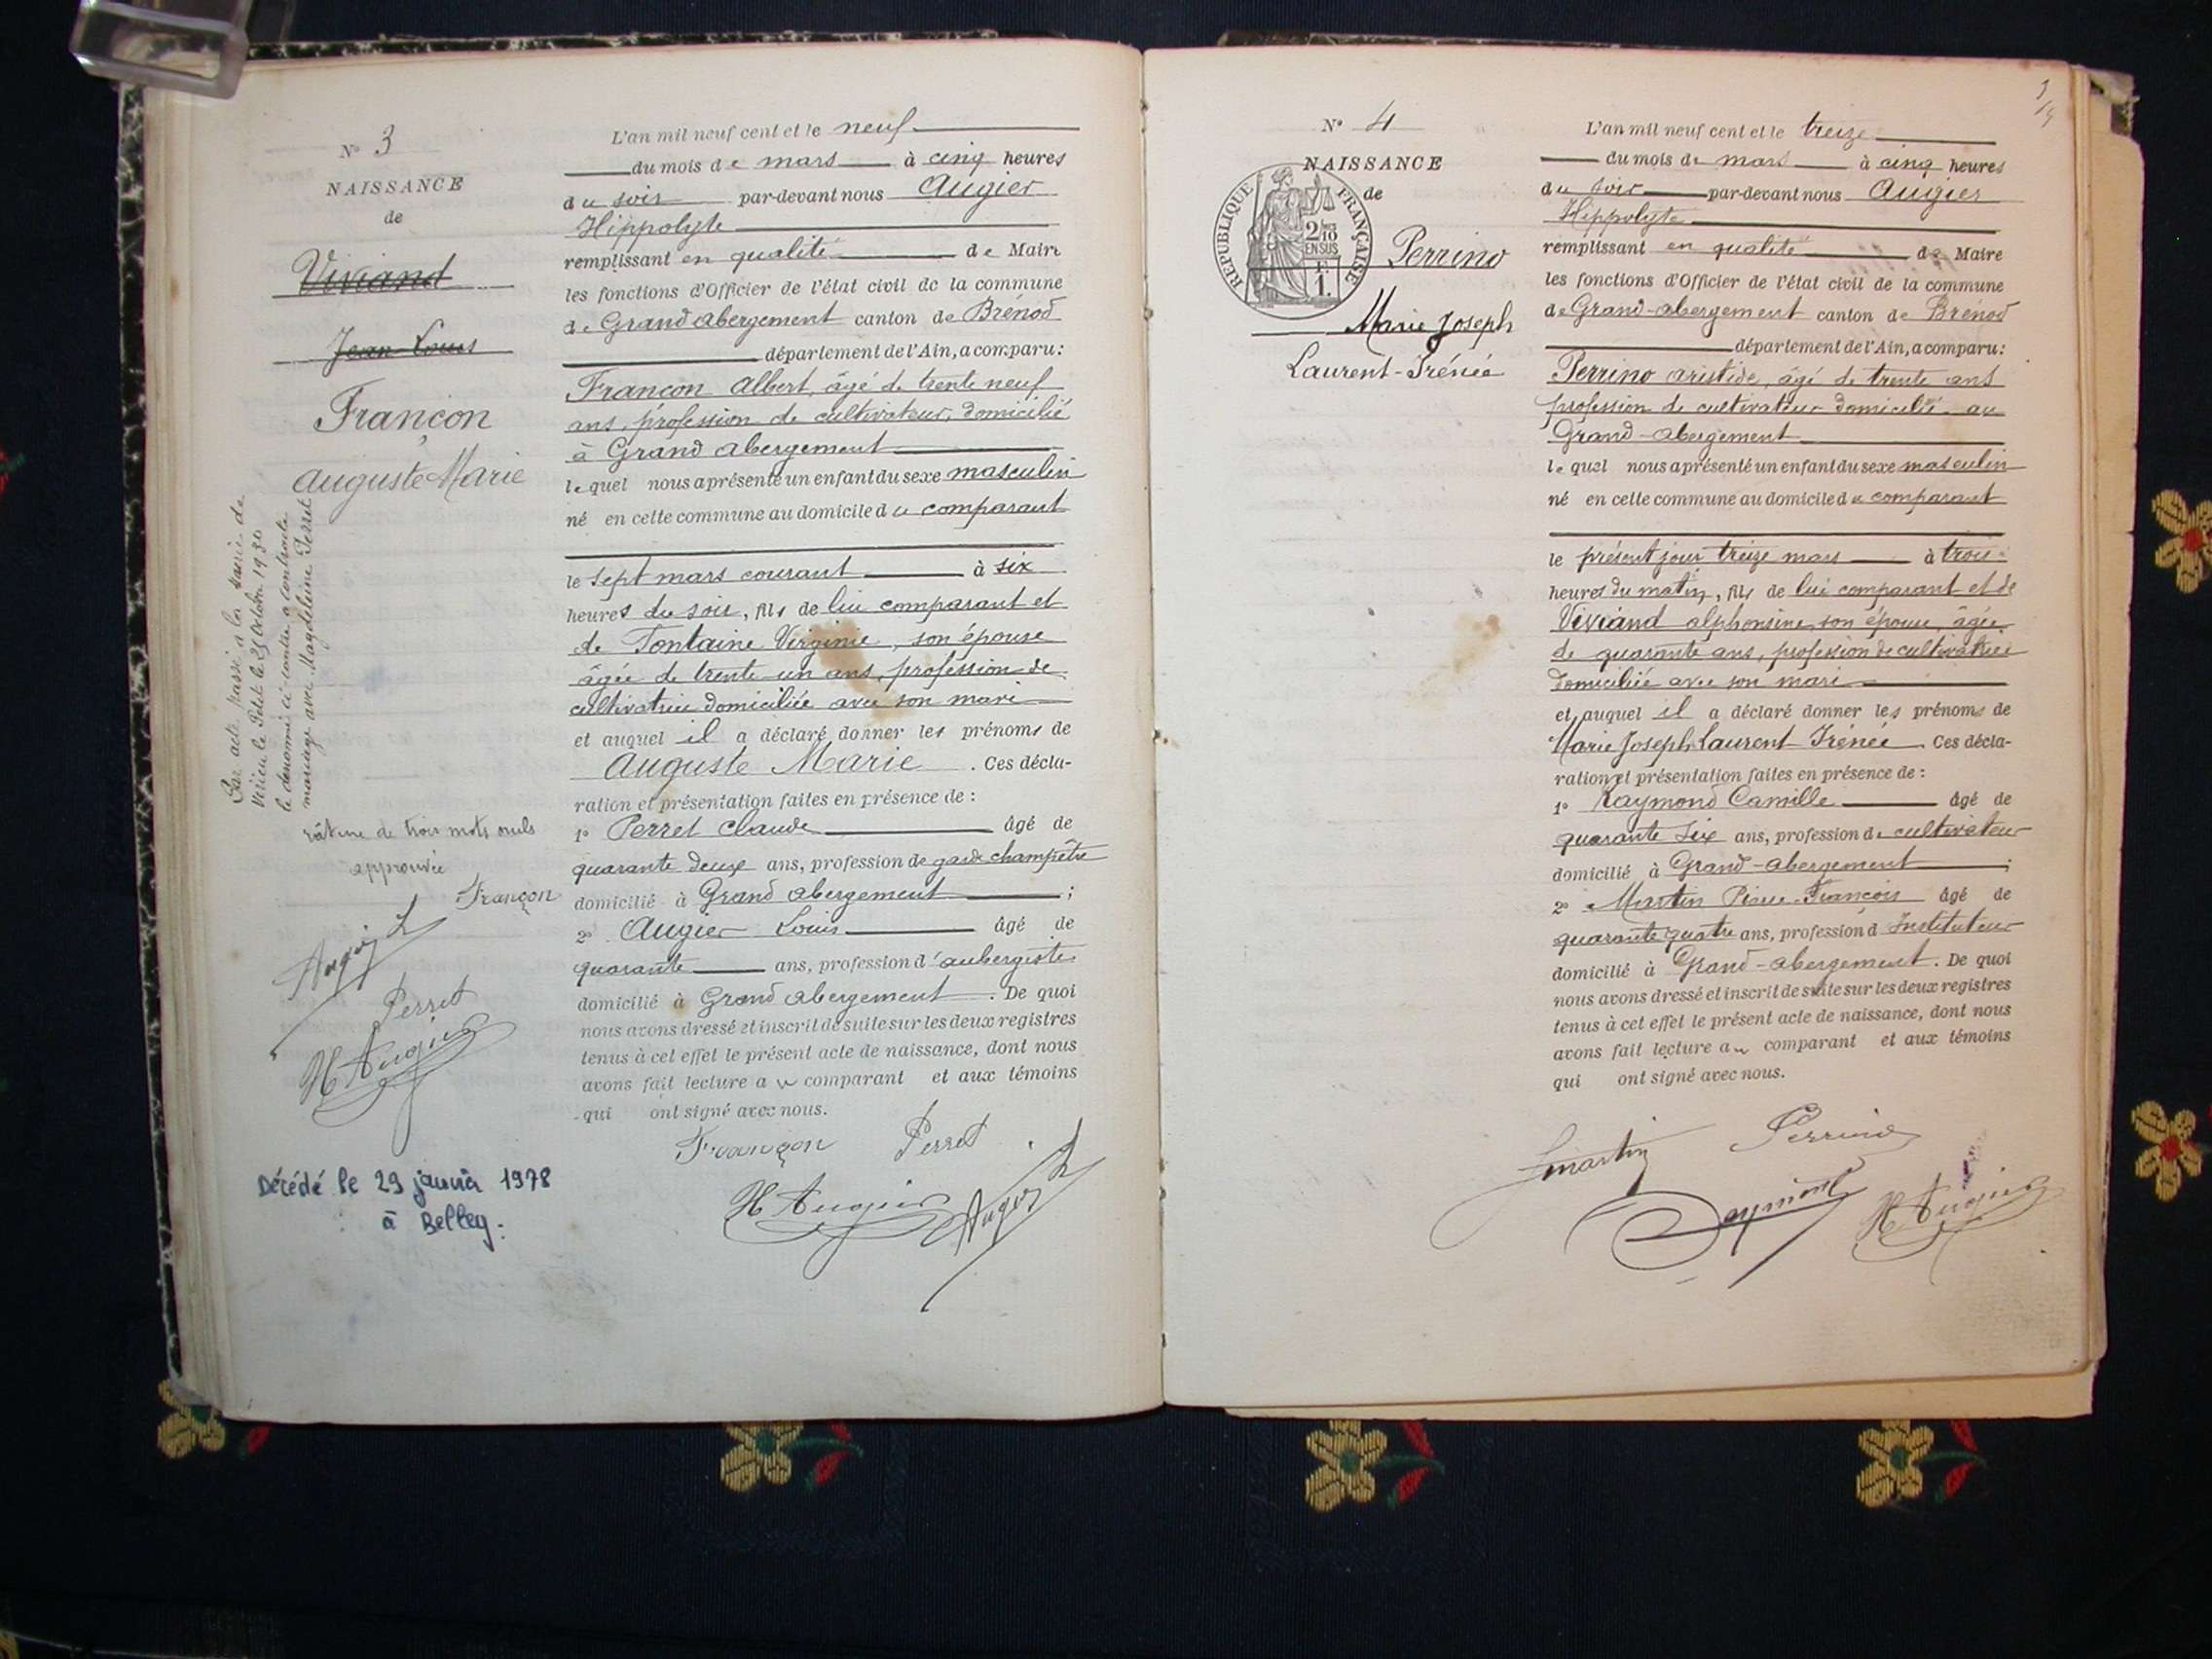 N° 3
NAISSANCE
de
Viviand
Jean Louis
Françon
Auguste Marie
Par acte passé à la mairie de
Virieu le Petit le 25 Octobre 1930
le dénommé ci-contre a contracté
mariage avec Magdeleine Perret
râture de trois mots nuls
approuvée
Françon
Augier L
Perret
H Augier
Décédé le 29 janvier 1978
à Belley.
L'an mil neuf cent et le neuf
du mois de mars à cinq heures
du soir par-devant nous Augier
Hippolyte
remplissant en qualité de Maire
les fonctions d'Officier de l'état civil de la commune
de Grand abergement canton de Brénod
département de l'Ain, a comparu :
Françon Albert, âgé de trente neuf
ans, profession de cultivateur, domicilié
à Grand abergement
lequel nous a présenté un enfant du sexe masculin
né en cette commune au domicile du comparant
le sept mars courant à six
heures du soir, fils de lui comparant et
de Fontaine Virginie, son épouse
âgée de trente-un ans, profession de
cultivatrice domiciliée avec son mari
et auquel il a déclaré donner les prénoms de
Auguste Marie . Ces décla-
ration et présentation faites en présence de :
1° Perret Claude âgé de
quarante deux ans, profession de garde champêtre
domicilié à Grand abergement ;
2° Augier Louis âgé de
quarante ans, profession d'aubergiste
domicilié à Grand abergement . De quoi
nous avons dressé et inscrit de suite sur les deux registres
tenus à cet effet le présent acte de naissance, dont nous
avons fait lecture au comparant et aux témoins
qui ont signé avec nous.
Françon Perret
H Augier Augier L
N° 4
NAISSANCE
de
REPUBLIQUE FRANÇAISE
2/10
EN SUS
1.
Perrino
Marie Joseph
Laurent-Irénée
L'an mil neuf cent et le treize
du mois de mars à cinq heures
du soir par-devant nous Augier
Hippolyte
remplissant en qualité de Maire
les fonctions d'Officier de l'état civil de la commune
de Grand-abergement canton de Brénod
département de l'Ain, a comparu :
Perrino Aristide, âgé de trente ans
profession de cultivateur domicilié au
Grand-abergement
lequel nous a présenté un enfant du sexe masculin
né en cette commune au domicile du comparant
le présent jour treize mars à trois
heures du matin, fils de lui comparant et de
Viviand alphonsine, son épouse, âgée
de quarante ans, profession de cultivatrice
domiciliée avec son mari
et auquel il a déclaré donner les prénoms de
Marie Joseph Laurent Irénée . Ces décla-
ration et présentation faites en présence de :
1° Raymond Camille âgé de
quarante six ans, profession de cultivateur
domicilié à Grand-abergement ;
2° Martin Pierre-François âgé de
quarante quatre ans, profession d'Instituteur
domicilié à Grand-abergement . De quoi
nous avons dressé et inscrit de suite sur les deux registres
tenus à cet effet le présent acte de naissance, dont nous
avons fait lecture au comparant et aux témoins
qui ont signé avec nous.
Martin Perrino
Raymond H Augier